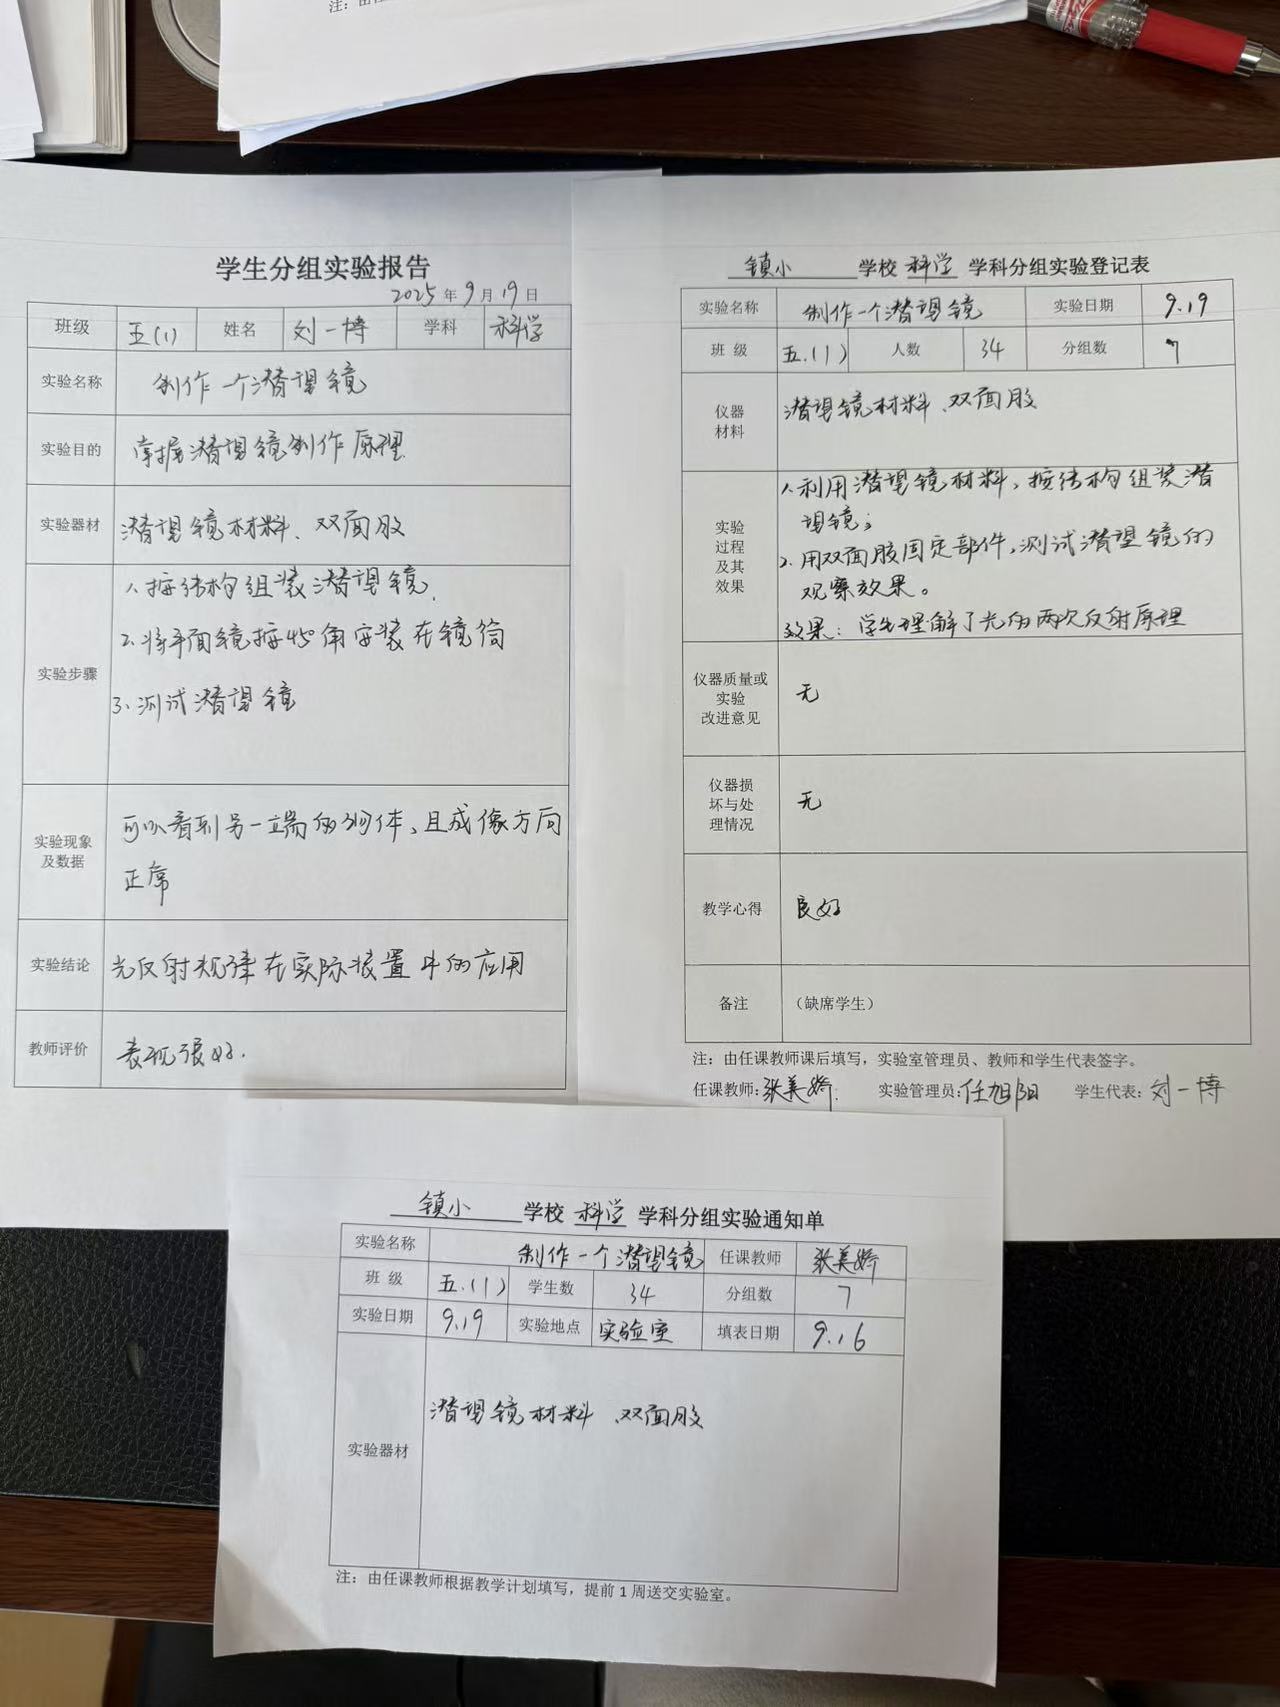 注：由任
学生分组实验报告
2025年9月19日
班级 五(1) 姓名 刘一博 学科 科学
实验名称 制作一个潜望镜
实验目的 掌握潜望镜制作原理.
实验器材 潜望镜材料、双面胶
实验步骤
1.按结构组装潜望镜.
2.将平面镜按45°角安装在镜筒
3.测试潜望镜
实验现象
及数据
可以看到另一端的物体、且成像方向
正常
实验结论 光反射规律在实际装置中的应用
教师评价 表现很好.
镇小 学校 科学 学科分组实验登记表
实验名称 制作一个潜望镜 实验日期 9.19
班 级 五.(1) 人数 34 分组数 7
仪器
材料
潜望镜材料、双面胶
实验
过程
及其
效果
1.利用潜望镜材料、按结构组装潜
望镜；
2.用双面胶固定部件，测试潜望镜的
观察效果。
效果：学生理解了光的两次反射原理
仪器质量或
实验
改进意见
无
仪器损
坏与处
理情况
无
教学心得 良好
备注 （缺席学生）
注：由任课教师课后填写，实验室管理员、教师和学生代表签字。
任课教师:张美娇. 实验管理员:任旭阳 学生代表:刘一博
镇小 学校 科学 学科分组实验通知单
实验名称 制作一个潜望镜 任课教师 张美娇
班 级 五.(1) 学生数 34 分组数 7
实验日期 9.19 实验地点 实验室 填表日期 9.16
实验器材 潜望镜材料、双面胶
注：由任课教师根据教学计划填写，提前 1 周送交实验室。